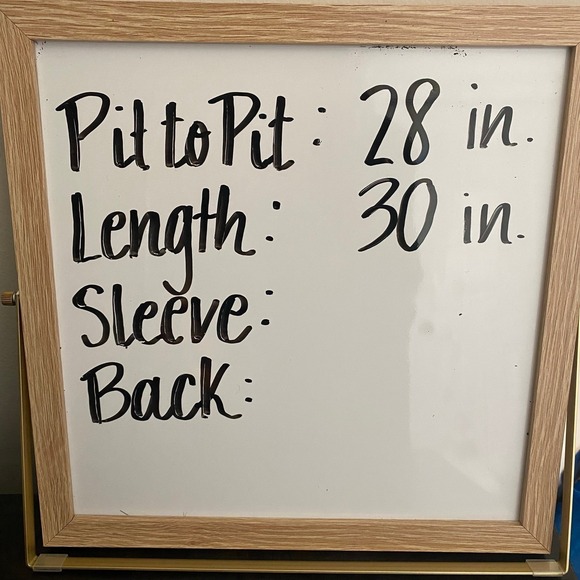 Pit to Pit: 28 in.
Length: 30 in.
Sleeve:
Back: